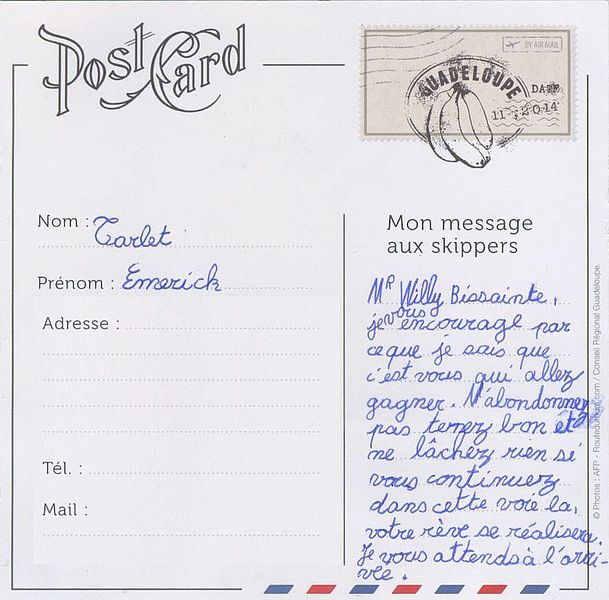 Post Card
BY AIR MAIL
GUADELOUPE
DATE
11, 2014
Nom : Tarlet
Prénom : Emerick
Adresse :
Tél. :
Mail :
Mon message
aux skippers
Mr Willy Bissainte,
je vous encourage par
ce que je sais que
c'est vous qui allez
gagner. N'abondonnez
pas tenez bon et
ne lâchez rien si
vous continuez
dans cette voie la,
votre rève se réalisera.
Je vous attends à l'arri-
vée.
© Photos : AFP - Routedurhum.com / Conseil Régional Guadeloupe.